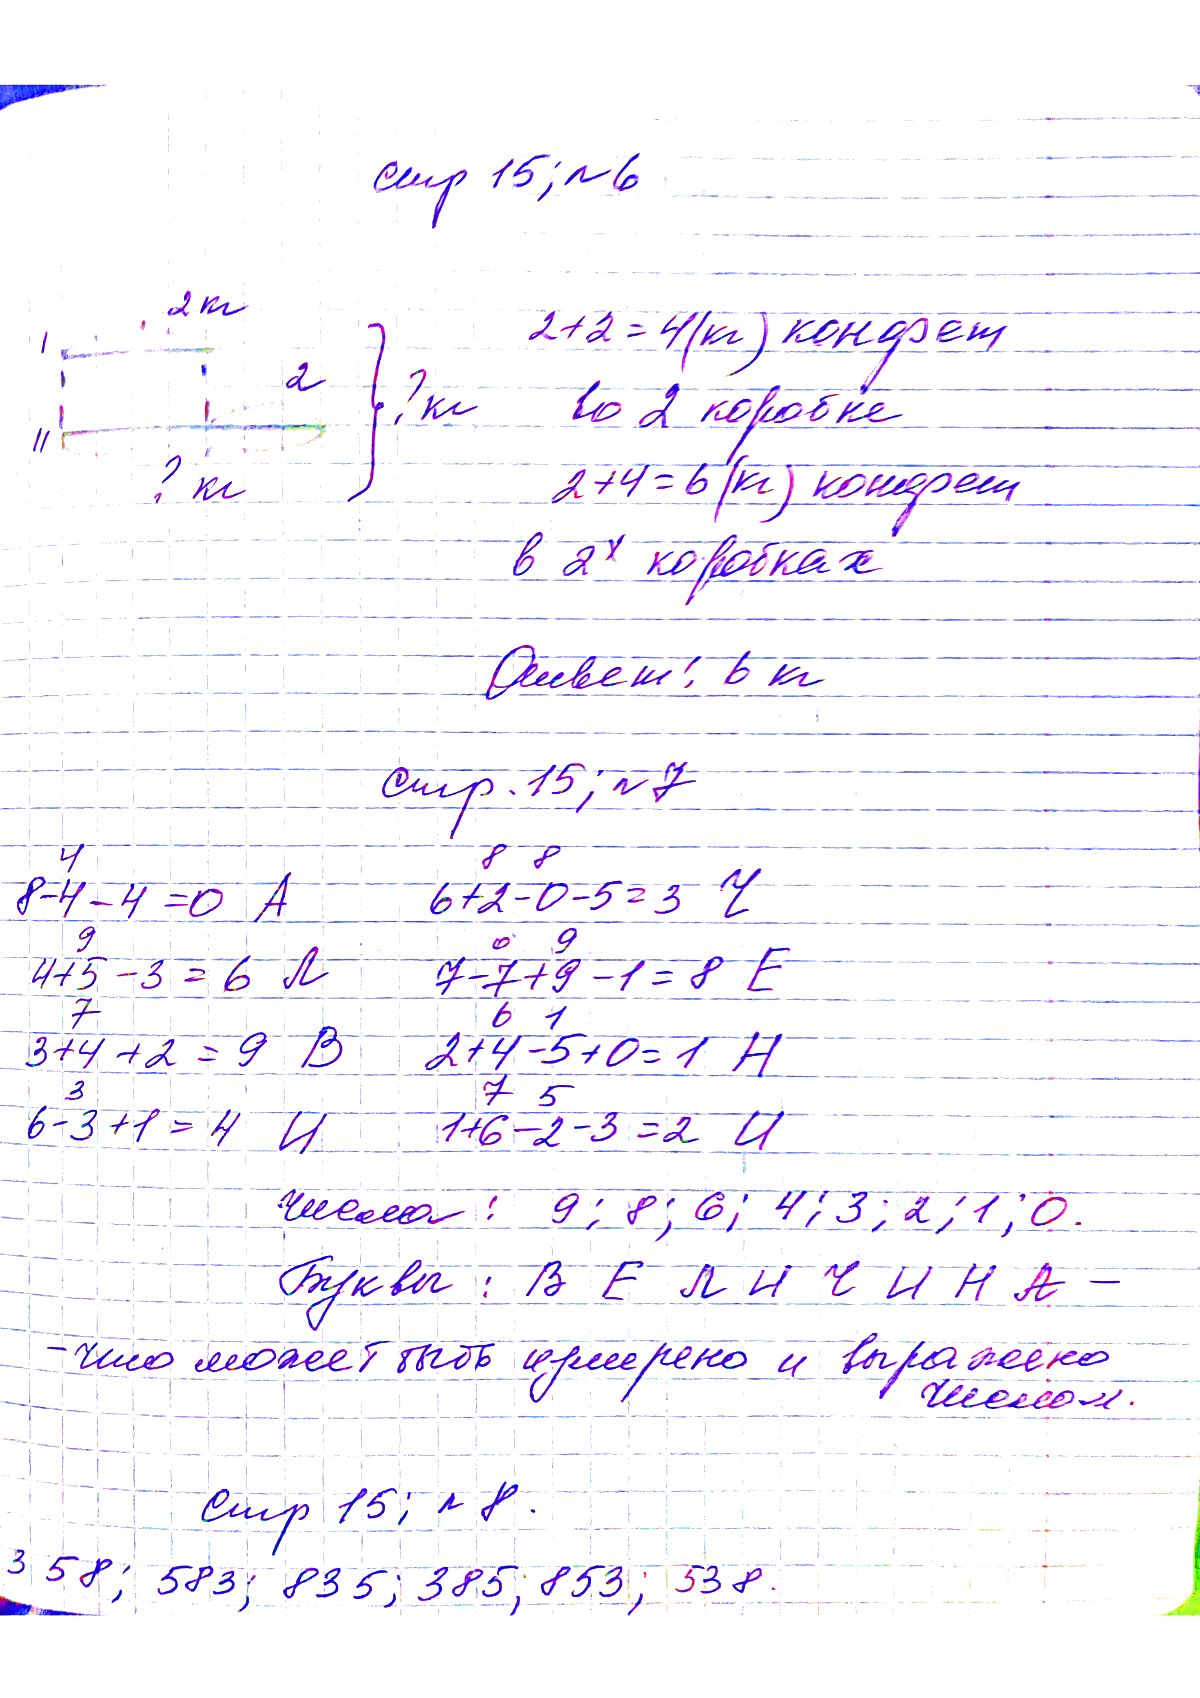 стр 15; №6
2 кг
I
2
? кг
II
? кг
2+2=4(кг) конфет
во 2 коробке
2+4=6(кг) конфет
в 2х коробках
Ответ: 6 кг
стр. 15; №7
4
8-4-4=0 А
9
4+5-3=6 Л
7
3+4+2=9 В
3
6-3+1=4 И
8 8
6+2-0-5=3 Ч
0 9
7-7+9-1=8 Е
6 1
2+4-5+0=1 Н
7 5
1+6-2-3=2 И
Числа: 9; 8; 6; 4; 3; 2; 1; 0.
Буквы: В Е Л И Ч И Н А –
- что может быть измерено и выражено
числом.
стр 15; №8.
358; 583; 835; 385; 853; 538.